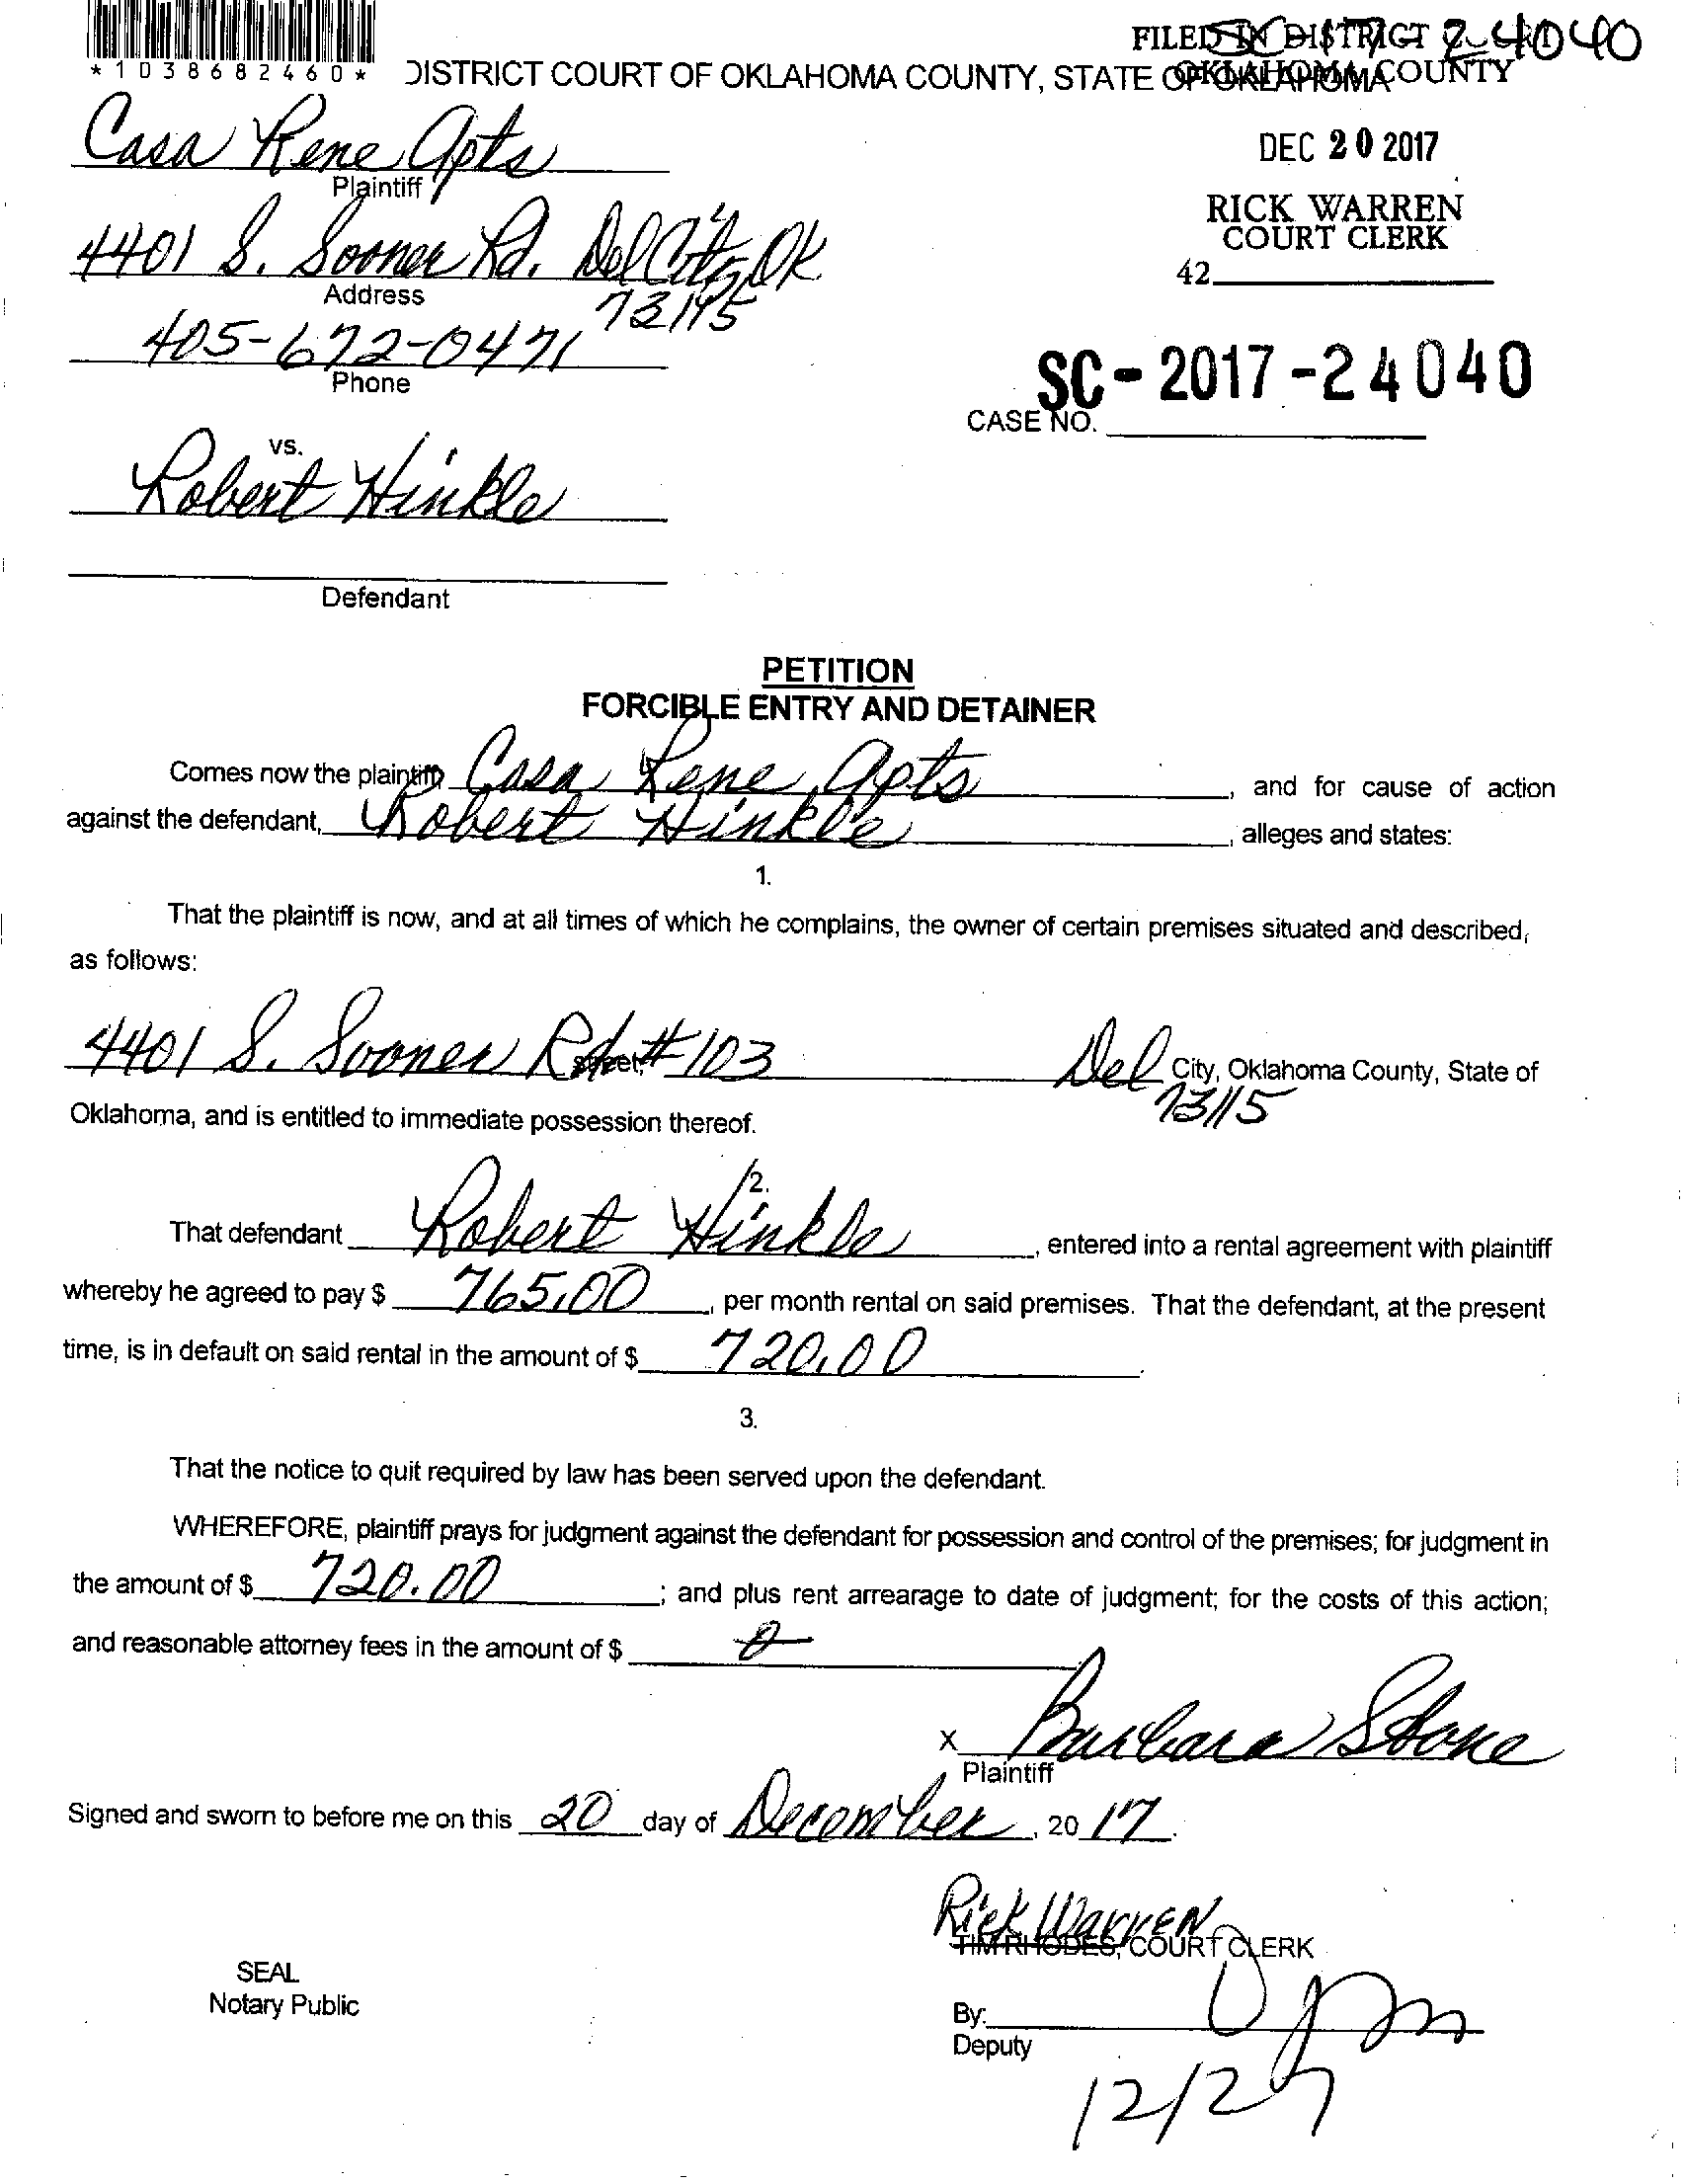 *1038682460*
SC 17-24040
FILED IN DISTRICT COURT
DISTRICT COURT OF OKLAHOMA COUNTY, STATE OF OKLAHOMA
OKLAHOMA COUNTY
Casa Rene Apts
Plaintiff
DEC 20 2017
4401 S. Sooner Rd. Del City, OK
73115
Address
RICK WARREN
COURT CLERK
42
405-672-0471
Phone
SC-2017-24040
CASE NO.
vs.
Robert Hinkle
Defendant
PETITION
FORCIBLE ENTRY AND DETAINER
Comes now the plaintiff, Casa Rene Apts, and for cause of action
against the defendant, Robert Hinkle, alleges and states:
1.
That the plaintiff is now, and at all times of which he complains, the owner of certain premises situated and described,
as follows:
4401 S. Sooner Rd. #103 street, Del City, Oklahoma County, State of
73115
Oklahoma, and is entitled to immediate possession thereof.
2.
That defendant Robert Hinkle, entered into a rental agreement with plaintiff
whereby he agreed to pay $ 765.00, per month rental on said premises. That the defendant, at the present
time, is in default on said rental in the amount of $ 720.00.
3.
That the notice to quit required by law has been served upon the defendant.
WHEREFORE, plaintiff prays for judgment against the defendant for possession and control of the premises; for judgment in
the amount of $ 720.00; and plus rent arrearage to date of judgment; for the costs of this action;
and reasonable attorney fees in the amount of $ 0
X Barbara Stone
Plaintiff
Signed and sworn to before me on this 20 day of December, 20 17.
Rick Warren
TIM RHODES, COURT CLERK
SEAL
Notary Public
By:
Deputy
12/27